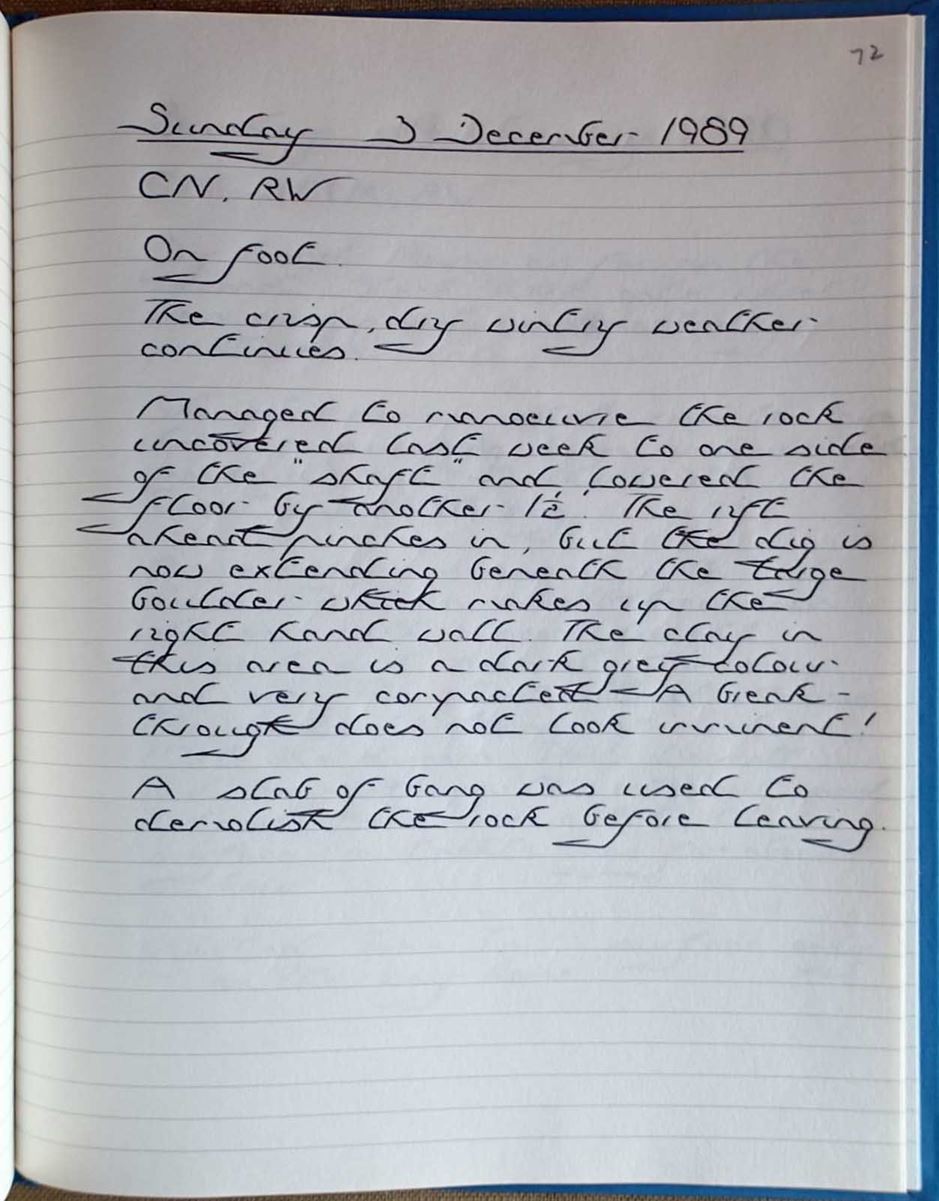 72
Sunday 3 December 1989
CN, RW
On foot.
The crisp, dry wintry weather
continues.
Managed to manoeuvre the rock
uncovered last week to one side
of the "shaft" and lowered the
floor by another 1½'. The rift
ahead pinches in, but the dig is
now extending beneath the large
boulder which makes up the
right hand wall. The clay in
this area is a dark grey colour
and very compacted. A break-
through does not look imminent!
A slab of bang was used to
demolish the rock before leaving.